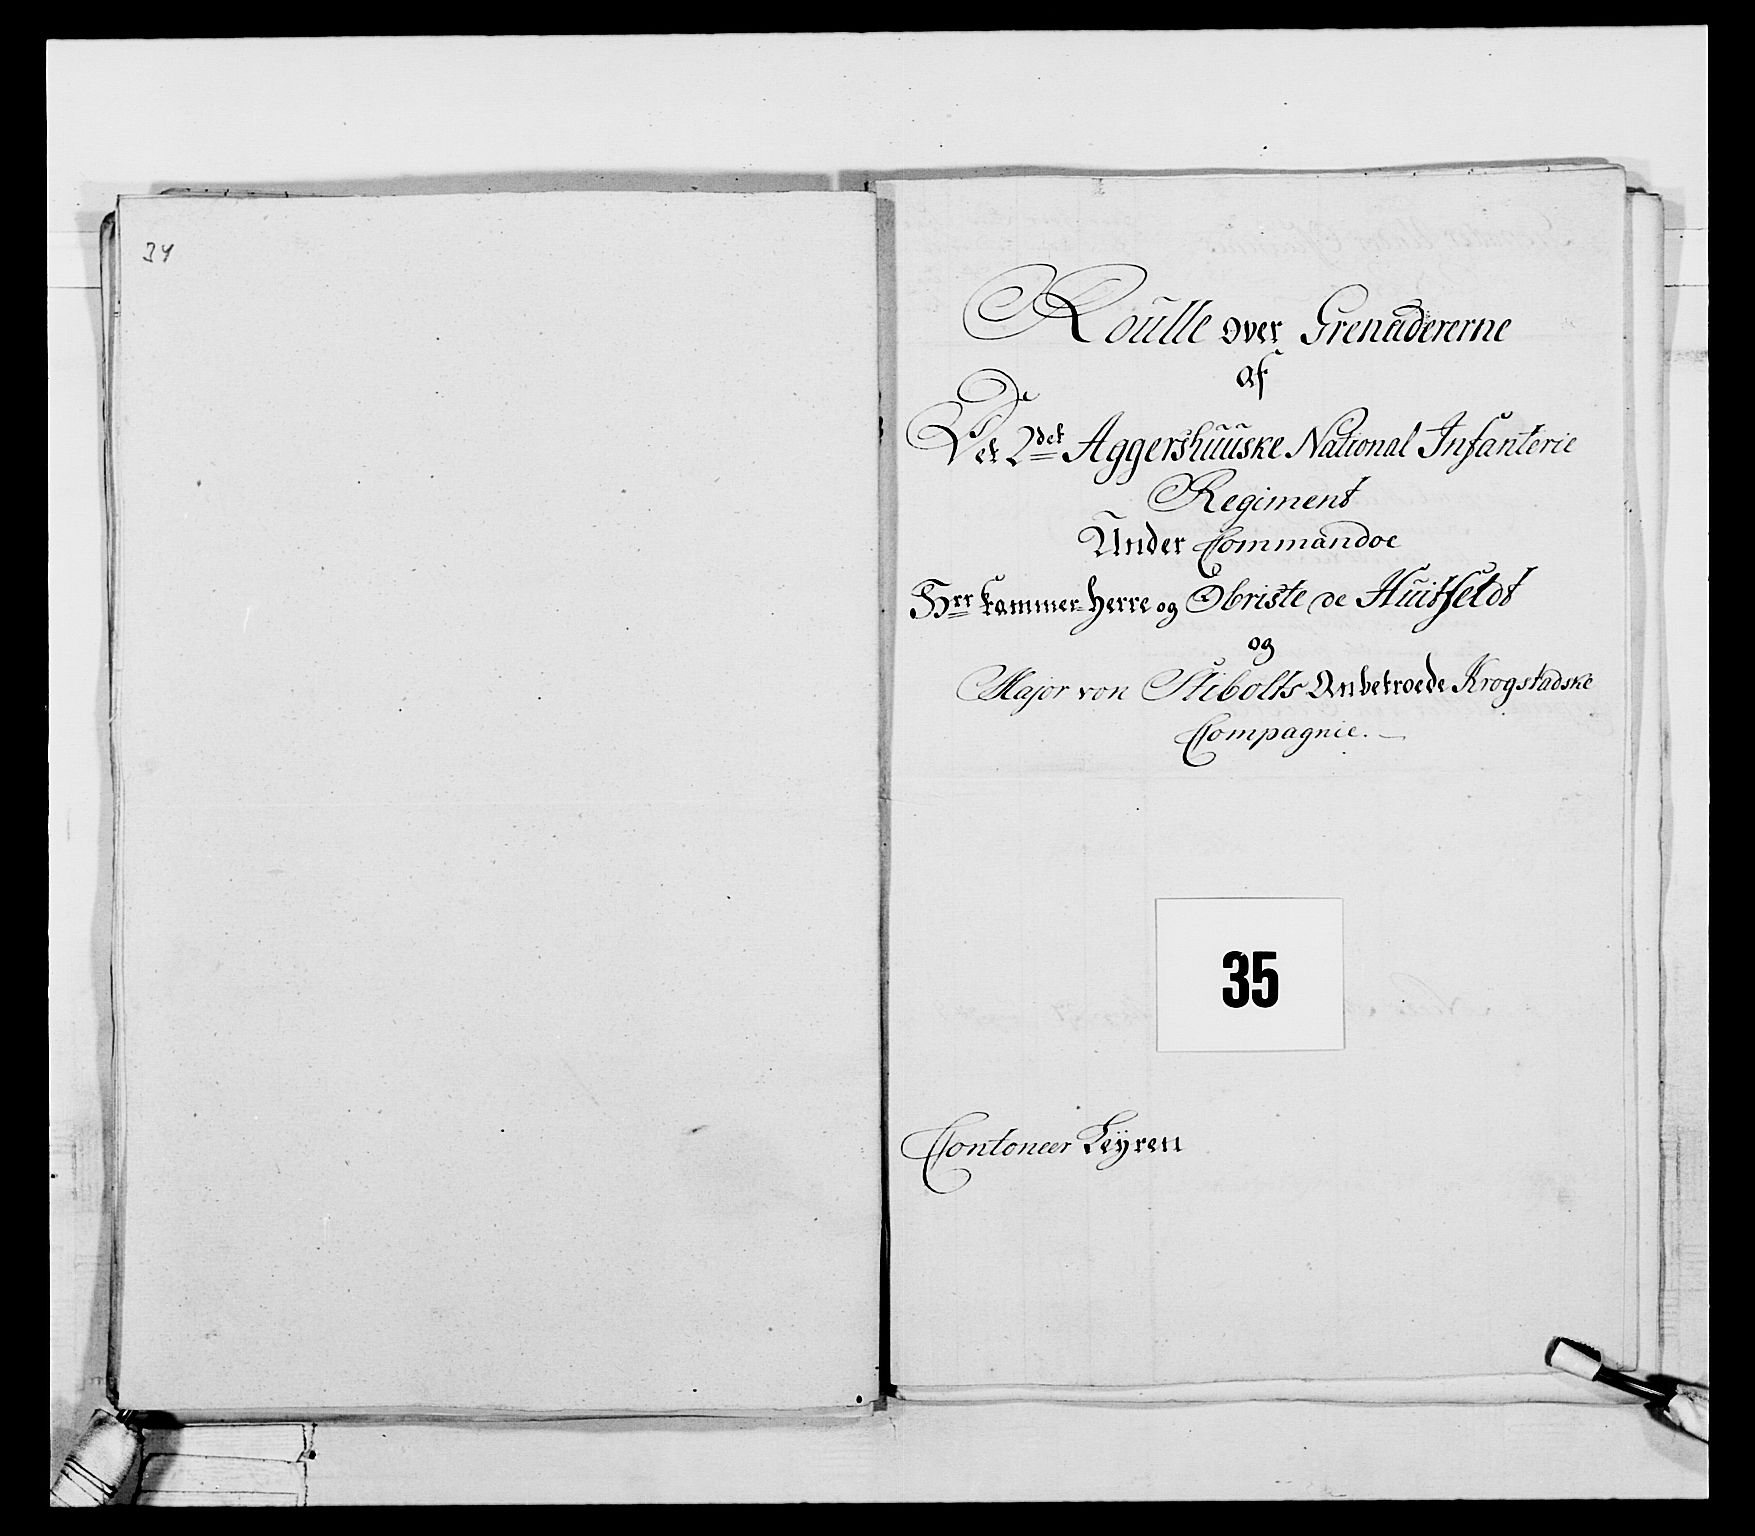 34
Roülle over Grenadererne
af
Det 2det Aggershüüske National Infanterie
Regiment
Under Commandoe
Hrr Kammer-Herre og Obriste de Huitfeldt
og
Major von Stibolts Anbetroede Krogstadske
Compagnie.
35
Contoneer Leÿren